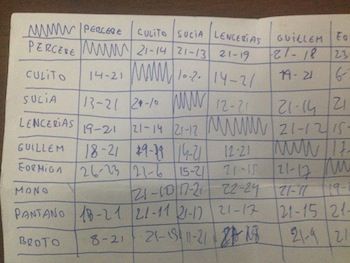 PERCEBE CULITO SULIA LENCERIAS GUILLEM
PERCEBE 21-14 21-13 21-19 21-18 23
CULITO 14-21 10-21 14-21 19-21 6-
SULIA 13-21 21-10 12-21 21-14 21
LENCERIAS 19-21 21-14 21-12 21-12 15-
GUILLEM 18-21 14-21 12-21 17-
EORMIGA 26-23 21-6 15-21 21-15 21-17
MONO 21-10 17-21 22-24 21-11 19-
PANTANO 18-21 21-11 21-17 21-17 21-15 21-
BROTO 8-21 11-21 21-9 21